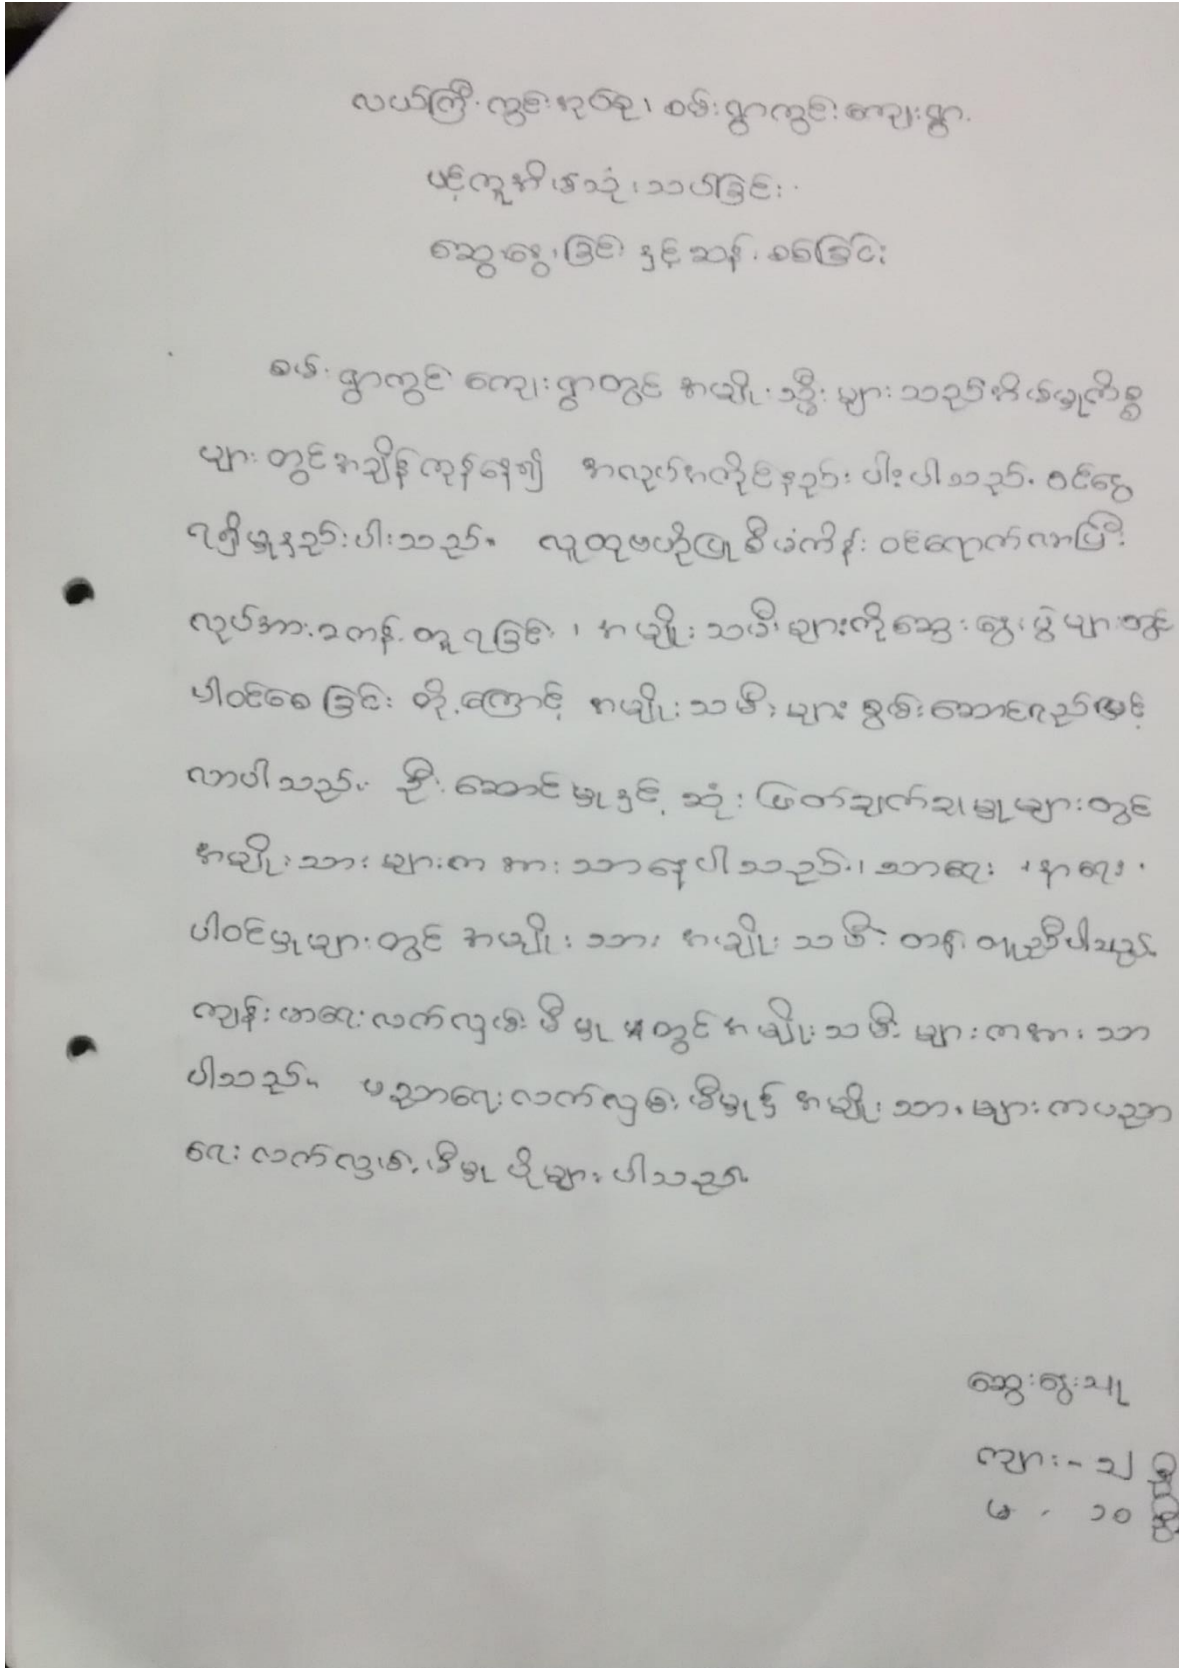 လယ်ကြီးကွင်းအုပ်စု၊ စမ်းရွာကွင်းကျေးရွာ
ပင့်ကူအိမ်သုံးသပ်ခြင်း
ဆွေးနွေးခြင်းနှင့်ဆန်းစစ်ခြင်း
စမ်းရွာကွင်းကျေးရွာတွင် အမျိုးသ္မီးများသည်အိမ်မှုကိစ္စ
များတွင်အချိန်ကုန်နေ၍ အလုပ်အကိုင်နည်းပါးပါသည်။ ဝင်ငွေ
ရရှိမှုနည်းပါးသည်။ လူထုဗဟိုပြုစီမံကိန်းဝင်ရောက်လာပြီး
လုပ်အားခတန်းတူရခြင်း၊ အမျိုးသမီးများကိုဆွေးနွေးပွဲများတွင်
ပါဝင်စေခြင်းတို့ကြောင့် အမျိုးသမီးများစွမ်းဆောင်ရည်မြင့်
လာပါသည်။ ဦးဆောင်မှုနှင့်ဆုံးဖြတ်ချက်ချမှုများတွင်
အမျိုးသားများကအားသာနေပါသည်။ သာရေး၊ နာရေး
ပါဝင်မှုများတွင် အမျိုးသား အမျိုးသမီး တန်းတူညီပါသည်။
ကျန်းမာရေးလက်လှမ်းမီမှုတွင်အမျိုးသမီးများကအားသာ
ပါသည်။ ပညာရေးလက်လှမ်းမီမှု၌အမျိုးသားများကပညာ
ရေးလက်လှမ်းမီမှုပိုများပါသည်။
ဆွေးနွေးသူ
ကျား - ၁၂ ဦး
မ - ၁၀ ဦး